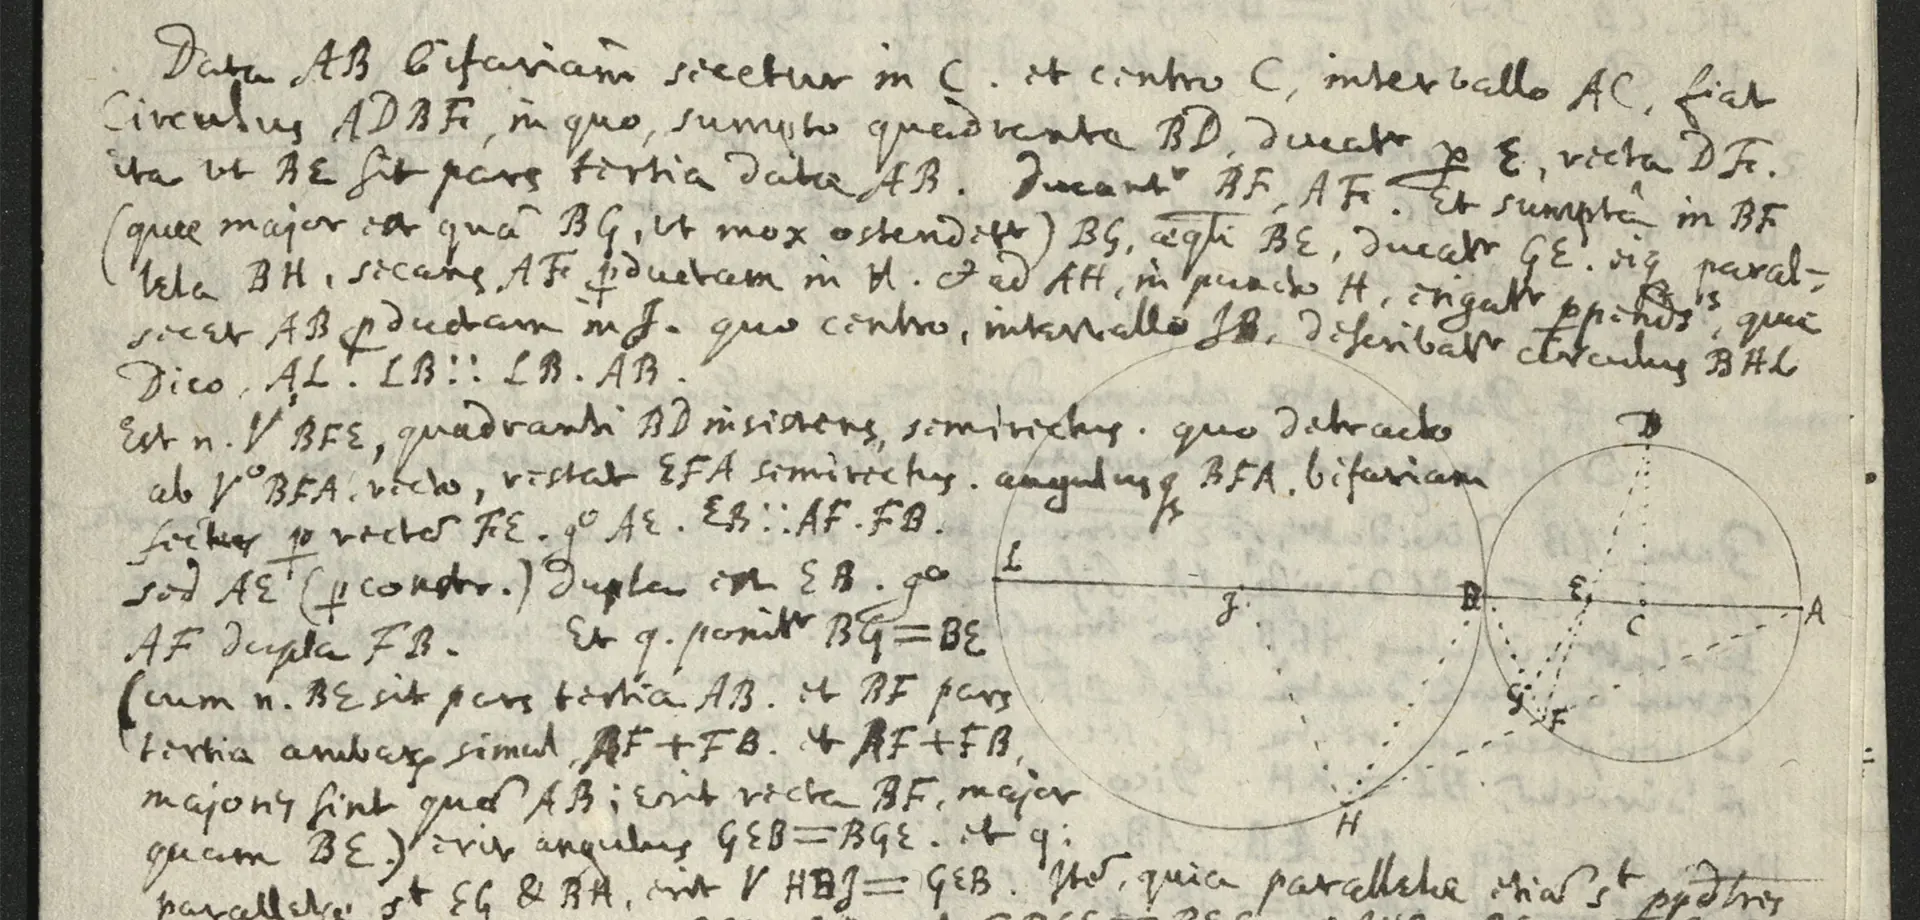 Data AB bifariam secetur in C. et centro C, intervallo AC, fiat
Circulus ADBF, in quo, sumpto quadrante BD, ducatr p E, recta DF.
ita ut BE sit pars tertia datæ AB. Ducantr BF, AF. Et sumptâ in BF
(quæ major est quā BG, ut mox ostendetr) BG, æqli BE, ducatr GE. eiq paral-
lela BH, secans AF pductam in H. & ad AH, in puncto H, erigatr ppendris, quæ
secet AB pductam in J. quo centro, intervallo JB, describatr circulus BHL
Dico, AL. LB :: LB. AB.
Est n. V BFE, quadranti BD insistens, semirectus. quo detracto
ab Vo BFA, recto, restat EFA semirectus. angulusq BFA, bifariam
sectus p rectā FE. go AE. EB :: AF. FB.
sed AE (p constr.) dupla est EB. go
AF dupla FB. Et q. ponitr BG = BE
(cum n. BE sit pars tertia AB. et BF pars
tertia ambar simul, AF + FB. et AF + FB,
majores sint quā AB; erit recta BF, major
quam BE.) erit angulus GEB = BGE. et q:
parallelæ st EG & BH, erit V HBJ = GEB. Itē, quia parallelæ etiā st
D
L
J
B
E
C
A
G
F
H